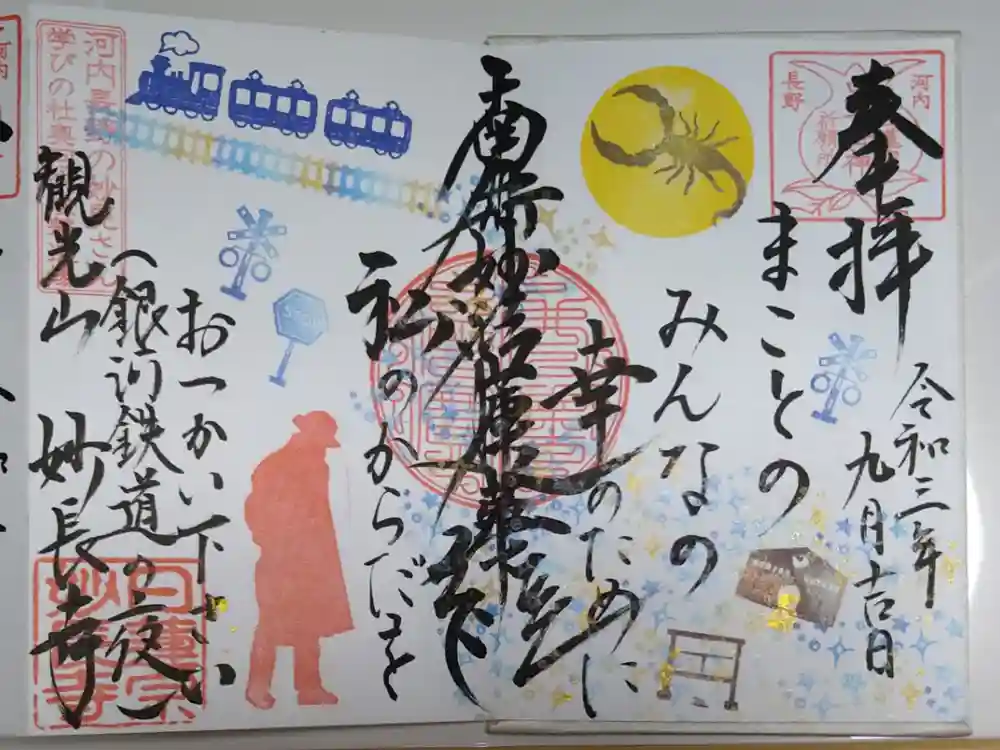 奉拝
令和三年
九月吉日
まことの
みんなの
幸のために
南無妙法蓮華経
私のからだを
おつかい下さい
(銀河鉄道の夜)
観光山 妙長寺
河内
長野
日蓮宗
妙長寺